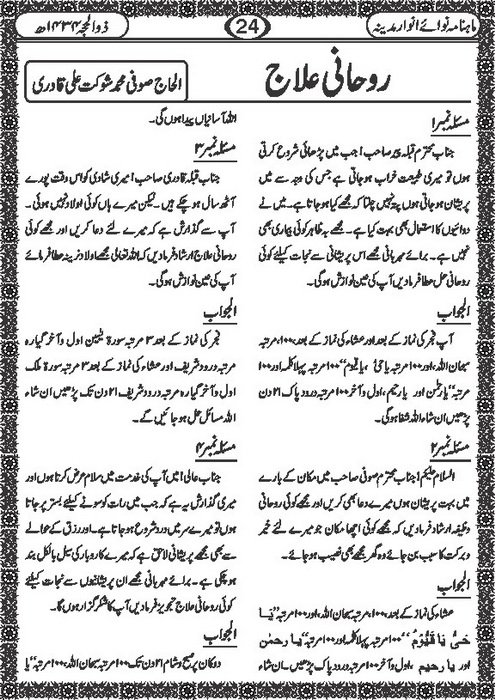 ماہنامہ نوائے انوار مدینہ
24
ذوالحجہ ۱۴۳۴ھ
روحانی علاج
الحاج صوفی محمد شوکت علی قادری
مسئلہ نمبر ۱
جناب محترم قبلہ پیر صاحب! جب میں پڑھائی شروع کرتی
ہوں تو میری طبیعت خراب ہو جاتی ہے جس کی وجہ سے میں
پریشان ہو جاتی ہوں پتہ نہیں چلتا کہ مجھے کیا ہو جاتا ہے۔ میں نے
دوائیوں کا استعمال بھی بہت کیا ہے۔ مجھے بہ ظاہر کوئی بیماری بھی
نہیں ہے۔ برائے مہربانی مجھے اس پریشانی سے نجات کیلئے کوئی
روحانی حل عطا فرمادیں آپ کی عین نوازش ہوگی۔
الجواب
آپ فجر کی نماز کے بعد اور عشاء کی نماز کے بعد، ۱۰۰ مرتبہ
سبحان اللہ، اور ۱۰۰ مرتبہ یاحیُ، یاقیوم" ۱۰۰ مرتبہ پہلا کلمہ اور ۱۰۰
مرتبہ "یارحمٰن اور یارحیم، اول و آخر ۱۰۰ مرتبہ درود پاک ۲۱ دن
پڑھیں ان شاء اللہ شفا ہوگی۔
مسئلہ نمبر ۲
السلام علیکم! جناب محترم صوفی صاحب میں مکان کے بارے
میں بہت پریشان ہوں میرے دعا بھی کریں اور مجھے کوئی روحانی
وظیفہ ارشاد فرمادیں کہ مجھے کوئی اچھا مکان جو میرے لئے خیر
و برکت کا سبب بن جائے وہ گھر مجھے بھی نصیب ہو جائے۔
الجواب
عشاء کی نماز کے بعد، ۱۰۰ مرتبہ سبحان اللہ، اور ۱۰۰ مرتبہ "یَا
حَیُّ یَا قَیُّوْمُ" ۱۰۰ مرتبہ پہلا کلمہ اور ۱۰۰ مرتبہ "یا رحمٰن
اور یا رحیم، اول و آخر ۱۰۰ مرتبہ درود پاک پڑھیں۔ ان شاء
اللہ آسانیاں پیدا ہوں گی۔
مسئلہ نمبر ۳
جناب قبلہ قادری صاحب! میری شادی کو اس وقت پورے
آٹھ سال ہو چکے ہیں۔ لیکن میرے ہاں کوئی اولاد نہیں ہوئی۔
آپ سے گذارش ہے کہ میرے لئے دعا کریں اور مجھے کوئی
روحانی علاج ارشاد فرمادیں کہ اللہ تعالیٰ مجھے اولاد نرینہ عطا فرمائے
آپ کی عین نوازش ہوگی۔
الجواب
فجر کی نماز کے بعد ۳ مرتبہ سورۃ یٰسین اول و آخر گیارہ
مرتبہ درود شریف اور عشاء کی نماز کے بعد ۳ مرتبہ سورۃ ملک
اول و آخر گیارہ مرتبہ درود شریف ۲۱ دن تک پڑھیں ان شاء
اللہ مسائل حل ہو جائیں گے۔
مسئلہ نمبر ۴
جناب عالی! میں آپ کی خدمت میں سلام عرض کرتا ہوں اور
میری گذارش یہ ہے کہ جب میں رات کو سونے کیلئے بستر پر جاتا
ہوں تو میرے سر میں درد شروع ہو جاتا ہے۔ اور رزق کے حوالے
سے بھی مجھے پریشانی لاحق ہے کہ میرے کاروبار کی سیل بالکل بند
ہو چکی ہے۔ برائے مہربانی مجھے ان پریشانیوں سے نجات کیلئے
کوئی روحانی علاج تجویز فرمادیں آپ کا شکر گزار ہوں گا۔
الجواب
دوکان پر صبح و شام ۲۱ دن تک ۱۰۰ مرتبہ سبحان اللہ، ۱۰۰ مرتبہ "یا